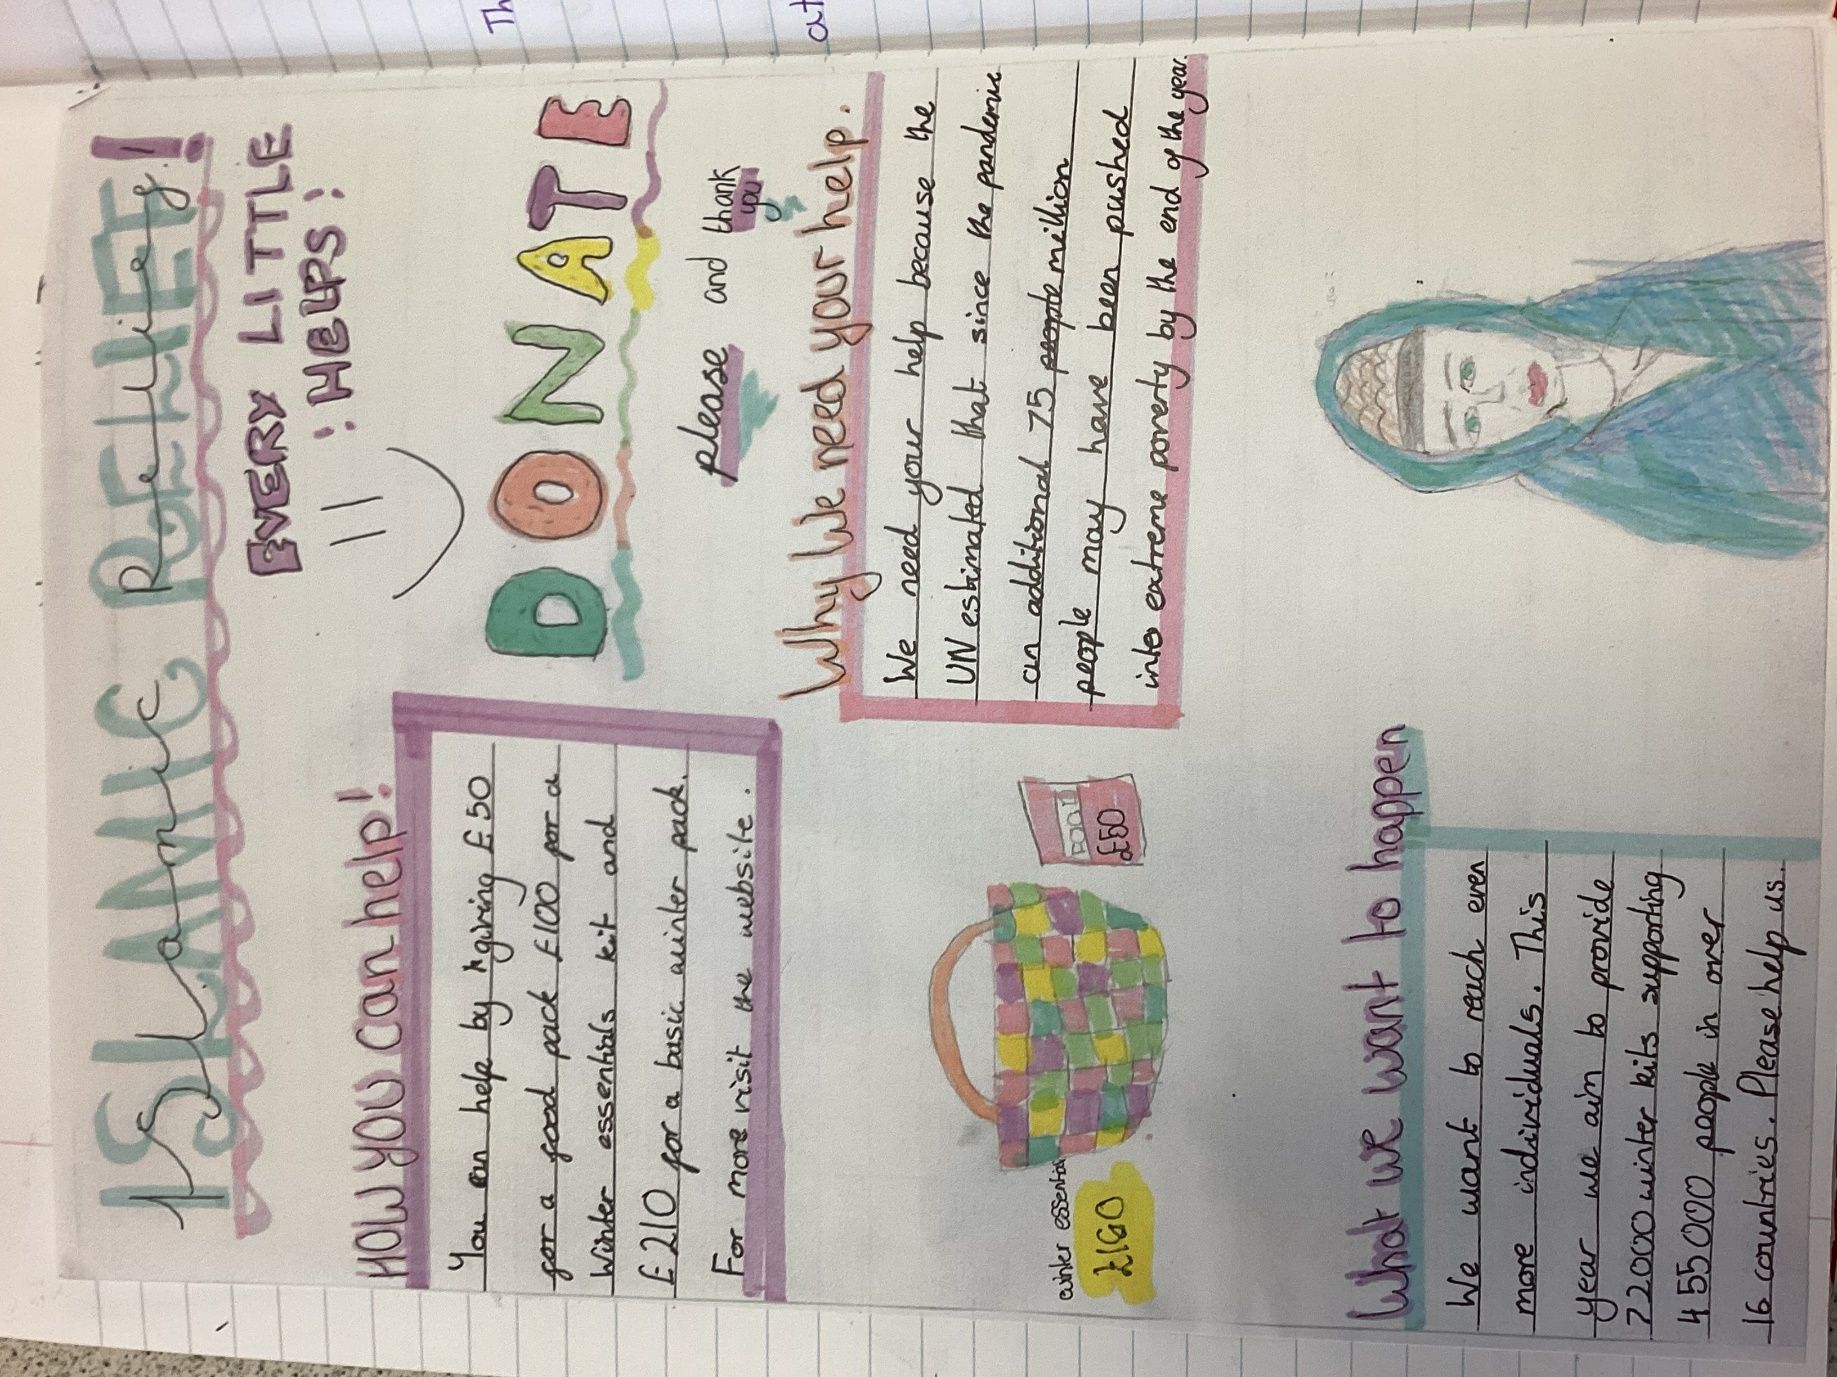 ISLAMIC RELIEF!
Islamic Relief
EVERY LITTLE
HELPS!
HOW YOU can help!
You can help by giving £50
for a food pack £100 for a
Winter essentials kit and
£210 for a basic winter pack.
For more visit the website.
DONATE
please and thank
you
Why We need your help.
We need your help because the
UN estimated that since the pandemic
an additional 75 people million
people may have been pushed
into extreme poverty by the end of the year.
winter essential
£160
FOOD
£50
What we want to happen
We want to reach even
more individuals. This
year we aim to provide
72000 winter kits supporting
455000 people in over
16 countries. Please help us.
Th
at